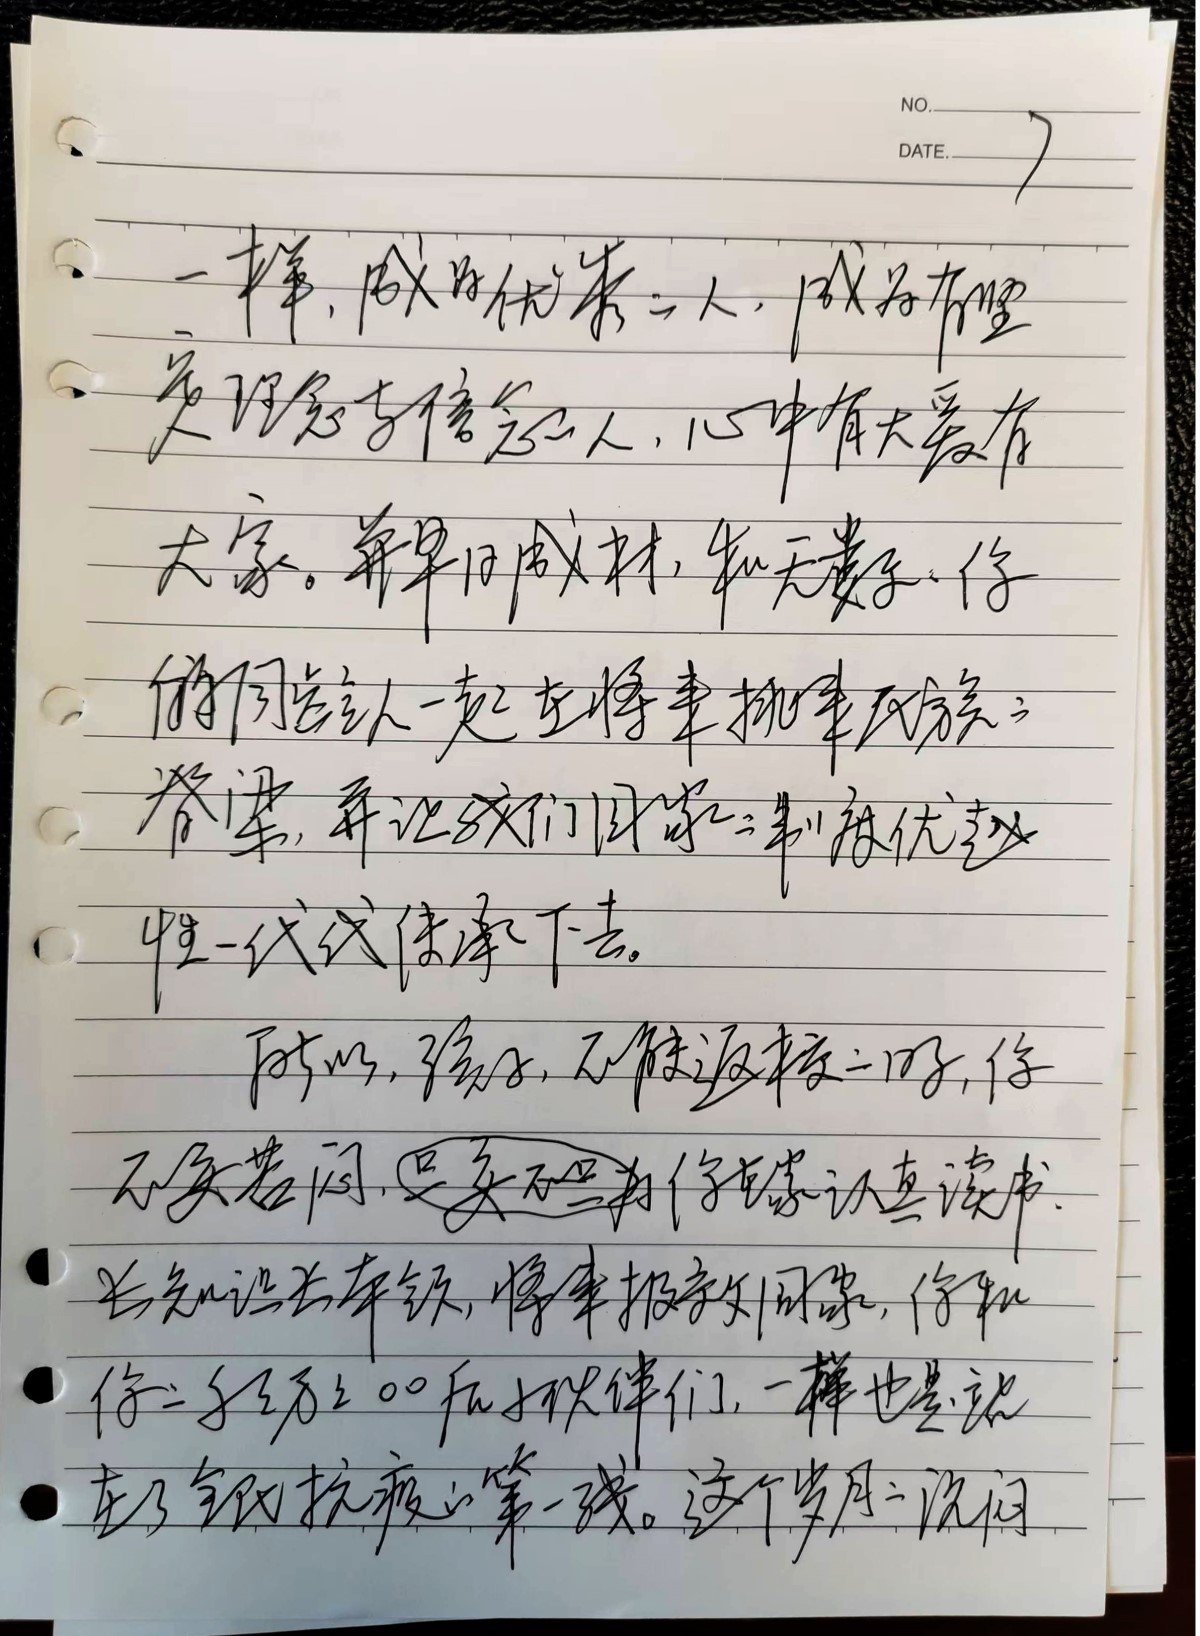 NO.
DATE. 7
一样，成为优秀的人，成为有坚
定理念与信念的人，心中有大爱有
大家。并早日成材，和无数、你
的同龄人一起在将来挑起民族的
脊梁，并让我们国家的制度优越
性一代代传承下去。
所以，孩子，不能返校的日子，你
不要苦闷，只要不只为你在家认真读书、
长知识长本领，将来报效国家，你和
你的千千万万00后小伙伴们，一样也是站
在了全民抗疫的第一线。这个岁月的沉闷